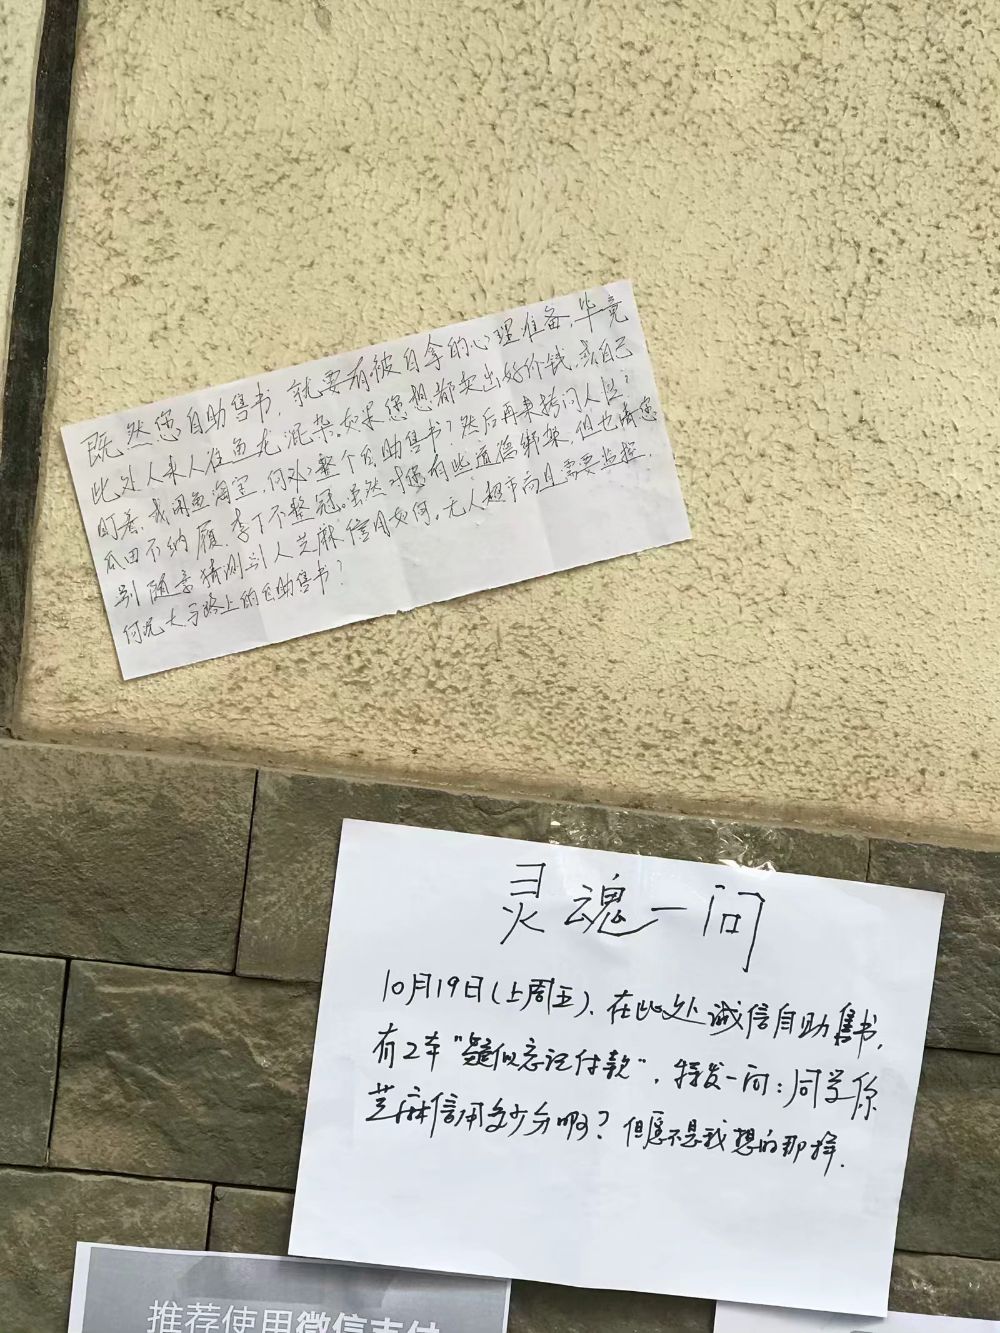 既然您自助售书，就要有被自拿的心理准备，毕竟
此处人来人往鱼龙混杂。如果您想都卖出好价钱，或自己
盯着，或闲鱼淘宝，何必整个自助售书？然后再来拷问人性？
瓜田不纳履，李下不整冠。虽然对您有此道德绑架，但也请您
别随意猜测别人芝麻信用如何。无人超市尚且需要监控，
何况大马路上的自助售书？
灵魂一问
10月19日（上周五）、在此处诚信自助售书，
有2本“疑似忘记付款”，特发一问：同学你
芝麻信用多少分啊？但愿不是我想的那样．
推荐使用微信支付